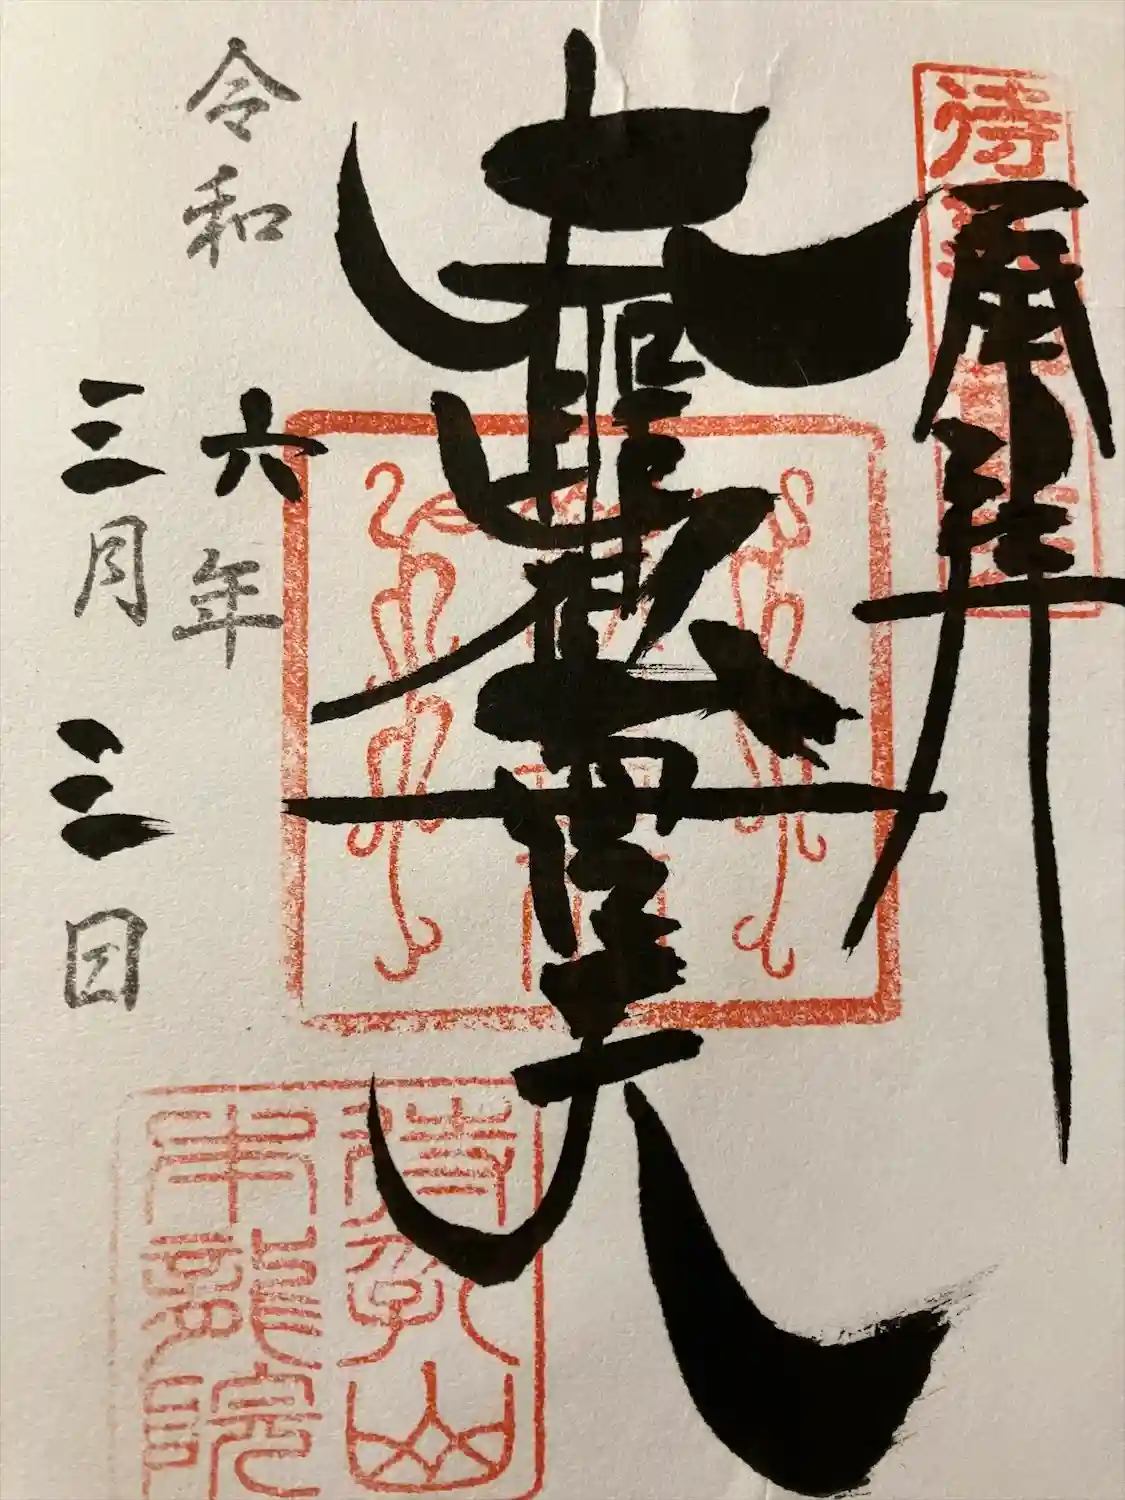 奉拝
大聖歓喜天
待乳山
本龍院
令和六年
三月三日